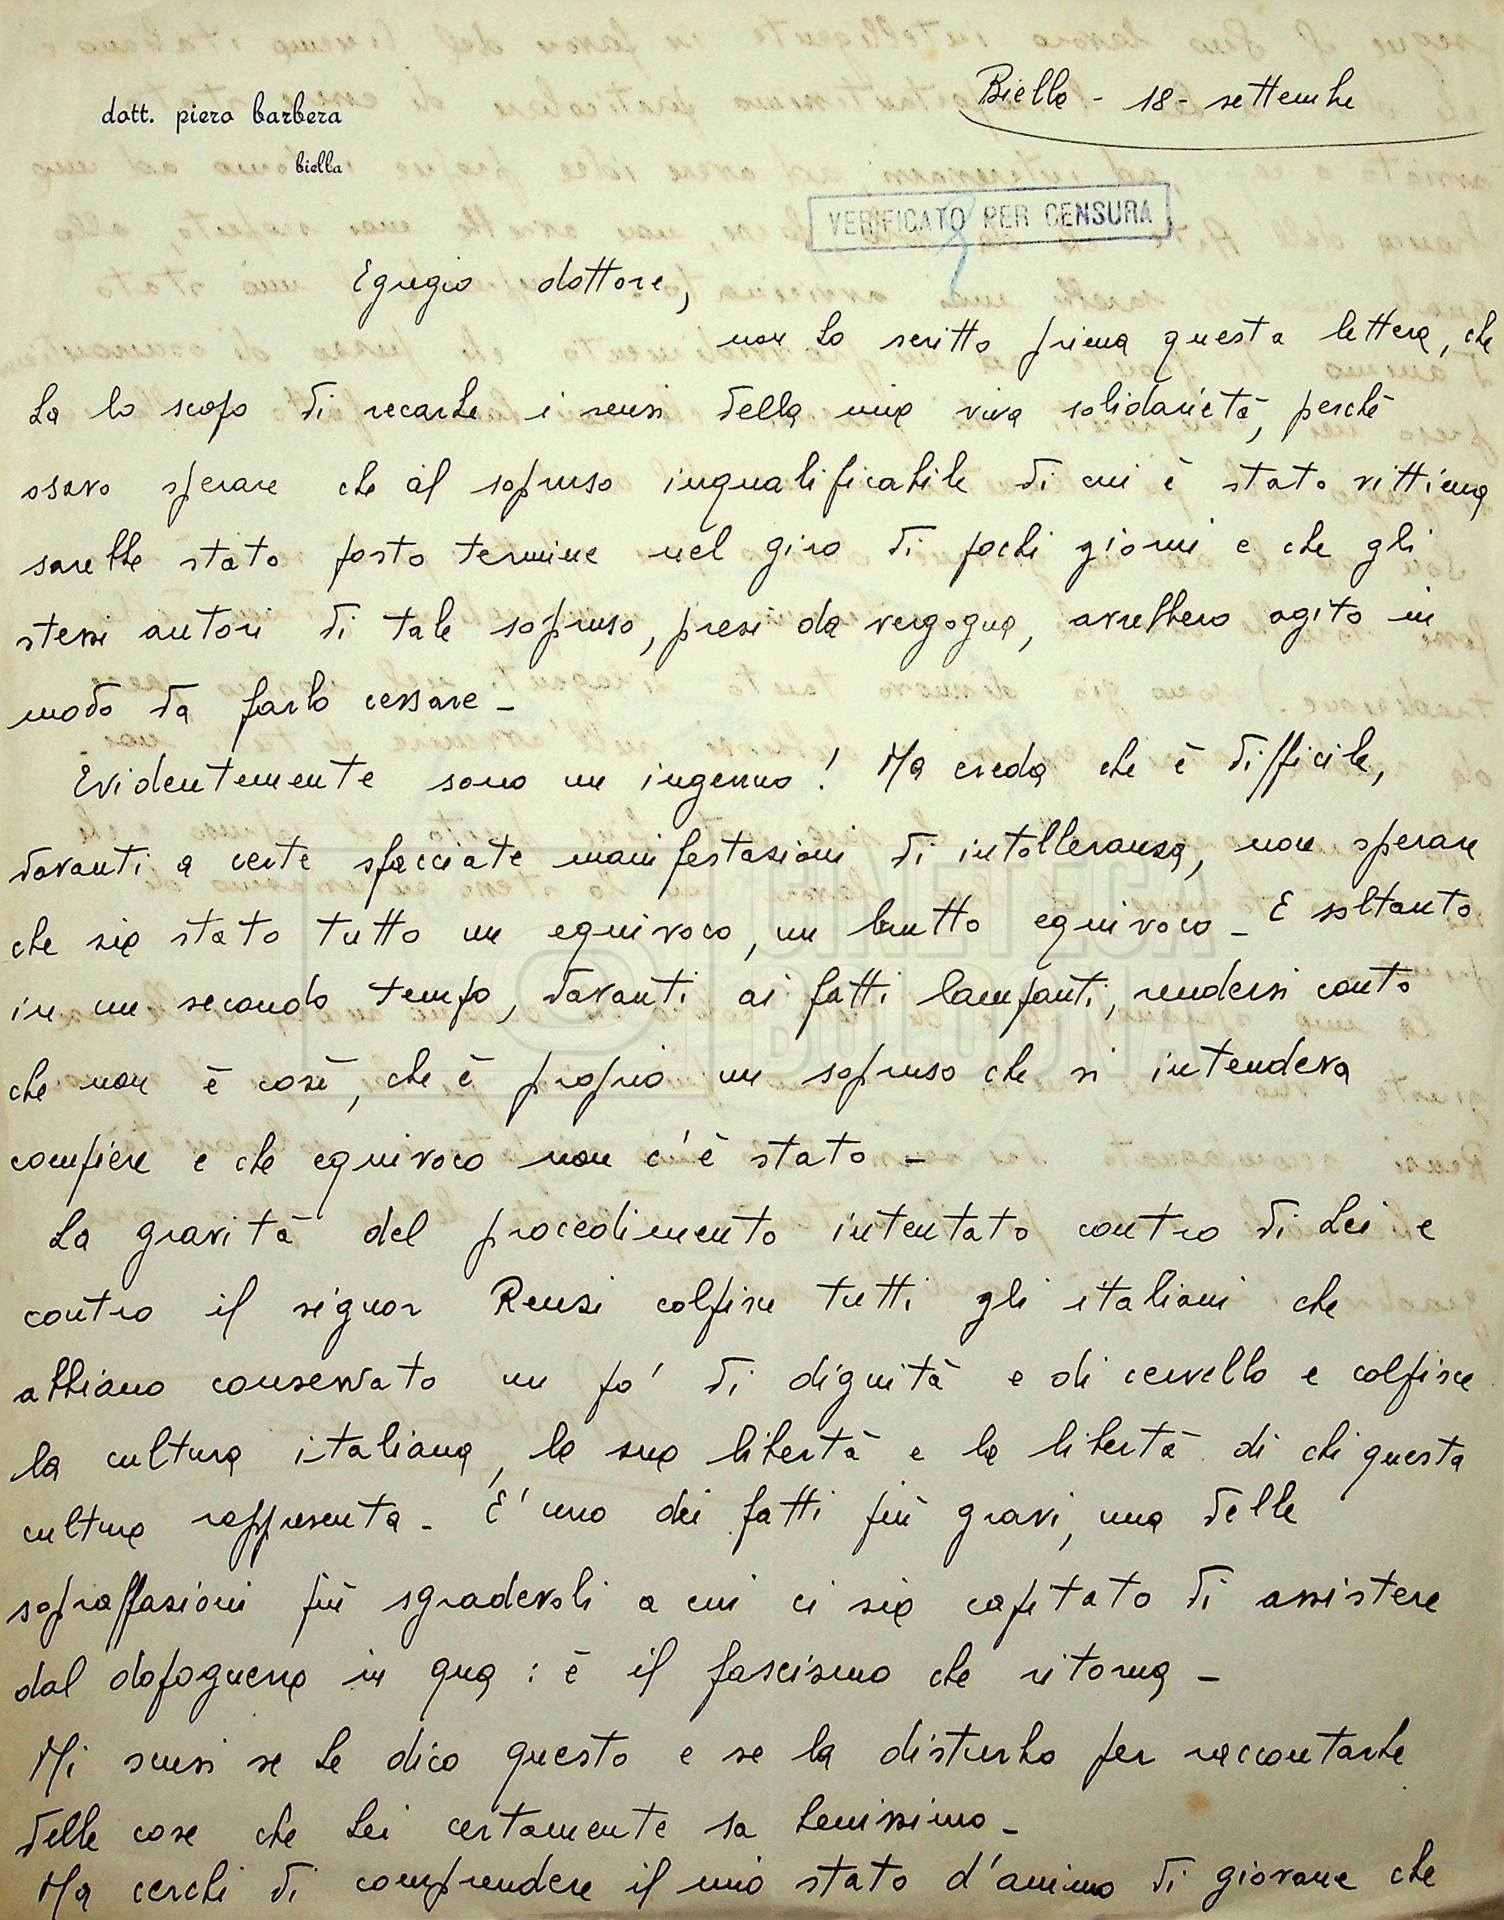 dott. piero barbera
biella
Biella - 18 - settembre
VERIFICATO PER CENSURA
Egregio dottore,
non ho scritto prima questa lettera, che
ha lo scopo di recarLe i sensi della mia viva solidarietà, perchè
osavo sperare che al sopruso inqualificabile di cui è stato vittima
sarebbe stato posto termine nel giro di pochi giorni e che gli
stessi autori di tale sopruso, presi da vergogna, avrebbero agito in
modo da farlo cessare -
Evidentemente sono un ingenuo! Ma creda che è difficile,
davanti a certe sfacciate manifestazioni di intolleranza, non sperare
che sia stato tutto un equivoco, un brutto equivoco - E soltanto
in un secondo tempo, davanti ai fatti lampanti, rendersi conto
che non è così, che è proprio un sopruso che si intendeva
compiere e che equivoco non c'è stato -
La gravità del procedimento intentato contro di Lei e
contro il signor Renzi colpisce tutti gli italiani che
abbiano conservato un pò' di dignità e di cervello e colpisce
la cultura italiana, la sua libertà e la libertà di chi questa
cultura rappresenta - E' uno dei fatti più gravi, una delle
sopraffazioni più sgradevoli a cui ci sia capitato di assistere
dal dopoguerra in qua : è il fascismo che ritorna -
Mi scusi se Le dico questo e se la disturbo per raccontarLe
delle cose che Lei certamente sa benissimo -
Ma cerchi di comprendere il mio stato d'animo di giovane che
CINETECA
BOLOGNA